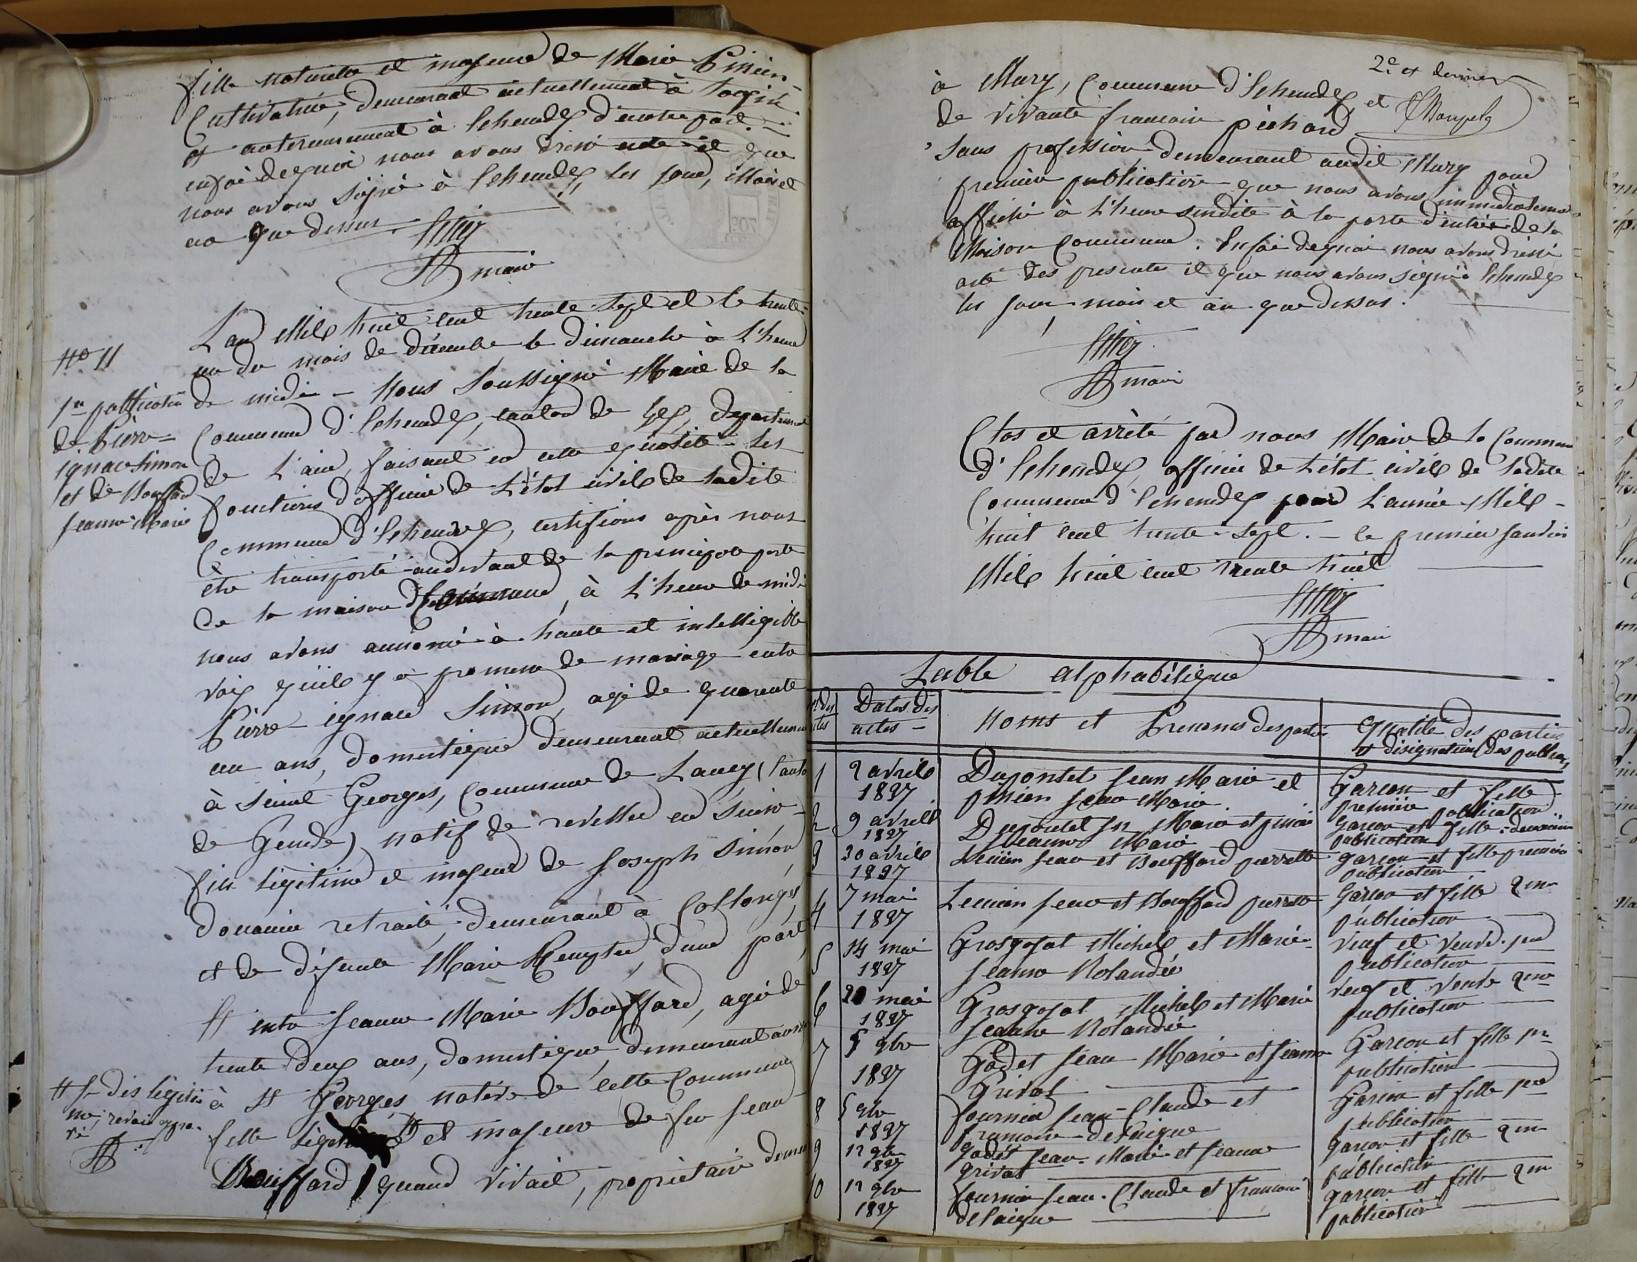 fille naturelle et majeure de Marie Pinien
Cultivatrice, demeurant actuellement à
et antérieurement à Echendex d'autre part.
en foi de quoi nous avons dressé acte et que
nous avons signé à Echendex, les jour, mois et
an que dessus.
maire
N° 11
1re publication
de Pierre=
ignace Simon
et de Bouffard
Jeanne Marie
L'an Mil huit cent trente sept et le trente
un du mois de décembre le dimanche à l'heure
de midi – Nous Soussigné Maire de la
Commune d'Echendex, canton de Gex, département
de l'ain, faisant en cette qualité les
fonctions d'officier de l'état civil de ladite
Commune d'Echendex, certifions après nous
être transporté au devant de la principale porte
de la maison Commune, à l'heure de midi
nous avons annoncé à haute et intelligible
voix qu'il y a promesse de mariage entre
Pierre ignace Simon, agé de quarante
un ans, domestique demeurant actuellement
à Saint Georges, Commune de Lancy (Canton
de Genève) natif de
fils légitime et majeur de Joseph Simon
douanier retraité, demeurant à Collonges
et de défunte Marie d'une part,
Et entre Jeanne Marie Bouffard, agée de
trente deux ans, domestique, demeurant aussi
à St Georges, native de cette Commune
fille et majeure de feu Jean
Bouffard quand vivait, propriétaire demeu
# Je dis légiti
me, renvoi appro.
vé
2e et dernier
à Mury, Commune d'Echendex, et
de vivante francoise pichard
sans profession demeurant audit Mury pour
premiere publication que nous avons immédiatement
affiché à l'heure susdite à la porte d'entrée de la
Maison Commune. En foi de quoi nous avons dressé
acte des presente et que nous avons signé à Echendex
les jour, mois et an que dessus.
maire
Clos et arrêté par nous Maire de la Commune
d'Echendex, officier de l'état civil de ladite
Commune d'Echendex pour l'année Mil –
huit cent trente-sept. – le premier janvier
Mil huit cent trente huit
maire
Table alphabétique
Dates des
actes –
Noms et Prenoms des parties
Qualité des parties
et désignation des public.
1 2 avril
1837
Dupontet Jean Marie et
pinien Jeane Marie.
Garcon et fille
premiere publication
2 9 avril
1837
Dupontet Jn Marie et pinien
Jeanne Marie
Garcon et fille deuxieme
publication
3 30 avril
1837
Lucien Jean et Bouffard pierrette
garcon et fille premiere
publication
4 7 mai
1837
Lucien Jean et Bouffard pierrette
Garcon et fille 2me
publication
5 14 mai
1837
Grosgojat Michel et Marie
Jeanne Rolandée
veuf et veuve. pre
publication
6 20 mai
1837
Grosgojat Michel et Marie
Jeanne Rolandée
veuf et veuve 2me
publication
7 5 9bre
1837
Godet Jean Marie et Jeanne
Grivat
Garcon et fille pre
publication
8 5 9bre
1837
fournier Jean-Claude et
francoise delaigue
Garcon et fille pre
publication
9 12 9bre
1837
godet Jean-Marie et Jeanne
grivat
garcon et fille 2me
publication
10 12 9bre
1837
fournier Jean-Claude et francoise
delaigue
garcon et fille 2me
publication